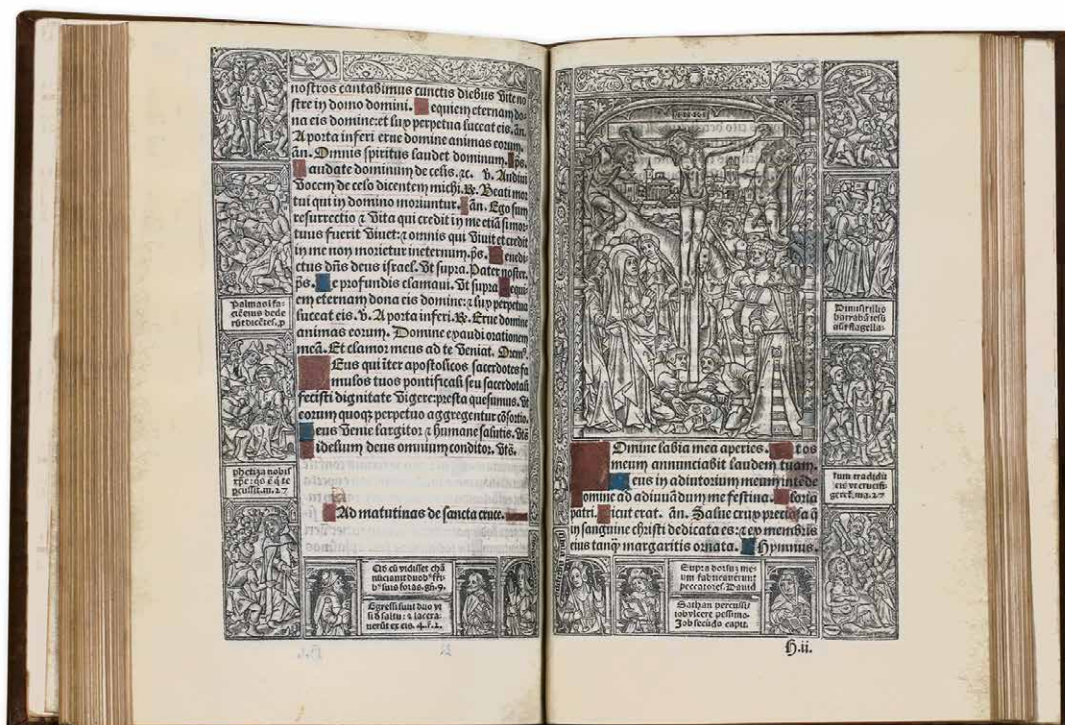 nostros cantabimus cunctis diebus vite no
stre in domo domini. equiem eternam do
na eis domine: et lux perpetua luceat eis. añ.
A porta inferi erue domine animas eorum.
añ. Omnis spiritus laudet dominum. ps.
audate dominum de celis. ⁊c. v. Audiui
vocem de celo dicentem michi. ℟. Beati mor
tui qui in domino moriuntur. añ. Ego sum
resurrectio ⁊ vita qui credit in me etiã si mor
tuus fuerit viuet: ⁊ omnis qui viuit et credit
in me non morietur ineternum. ps. enedi
ctus dñs deus israel. vt supra. Pater noster.
ps. e profundis clamaui. vt supra equi
em eternam dona eis domine: ⁊ lux perpetua
luceat eis. v. A porta inferi. ℟. Erue domine
animas eorum. Domine exaudi orationem
meã. Et clamor meus ad te veniat. Orem⁹.
Eus qui iter apostolicos sacerdotes fa
mulos tuos pontificali seu sacerdotali
fecisti dignitate vigere: presta quesumus. vt
eorum quoqꝫ perpetuo aggregentur cõsortio.
eus venie largitor ⁊ humane salutis. vts̃
idelium deus omnium conditor. vts̃.
Ad matutinas de sancta cruce.
Palmas ĩ fa
ciẽ eius dede
rũt dicẽtes. p
phetiza nobis
xp̃e: q̃s ẽ q̃ te
pcussit. m. 27
cha
nunciauit duob⁹ frĩ
b⁹ suis foras. gñ. 9.
Egressi sunt duo vr
si ð saltu: ⁊ lacera
uerũt ex eis. 4. r. 2.
INRI
Omine labia mea aperies. t os
meum annunciabit laudem tuam.
eus in adiutorium meum intẽde
omine ad adiuuãdum me festina. loria
patri. icut erat. añ. Salue crux preciosa q̃
in sanguine christi dedicata es: ⁊ ex membris
eius tanq̃ margaritis ornata. Hymnus.
Dimisit illis
barrabã iesũ
aũt flagella
tum tradidit
eis vt crucifi
geret. ma. 27
Supra dorsum me
um fabricauerunt
peccatores. Dauid
Sathan percussit
iob vlcere pessimo.
Job secũdo capit.
H.ii.